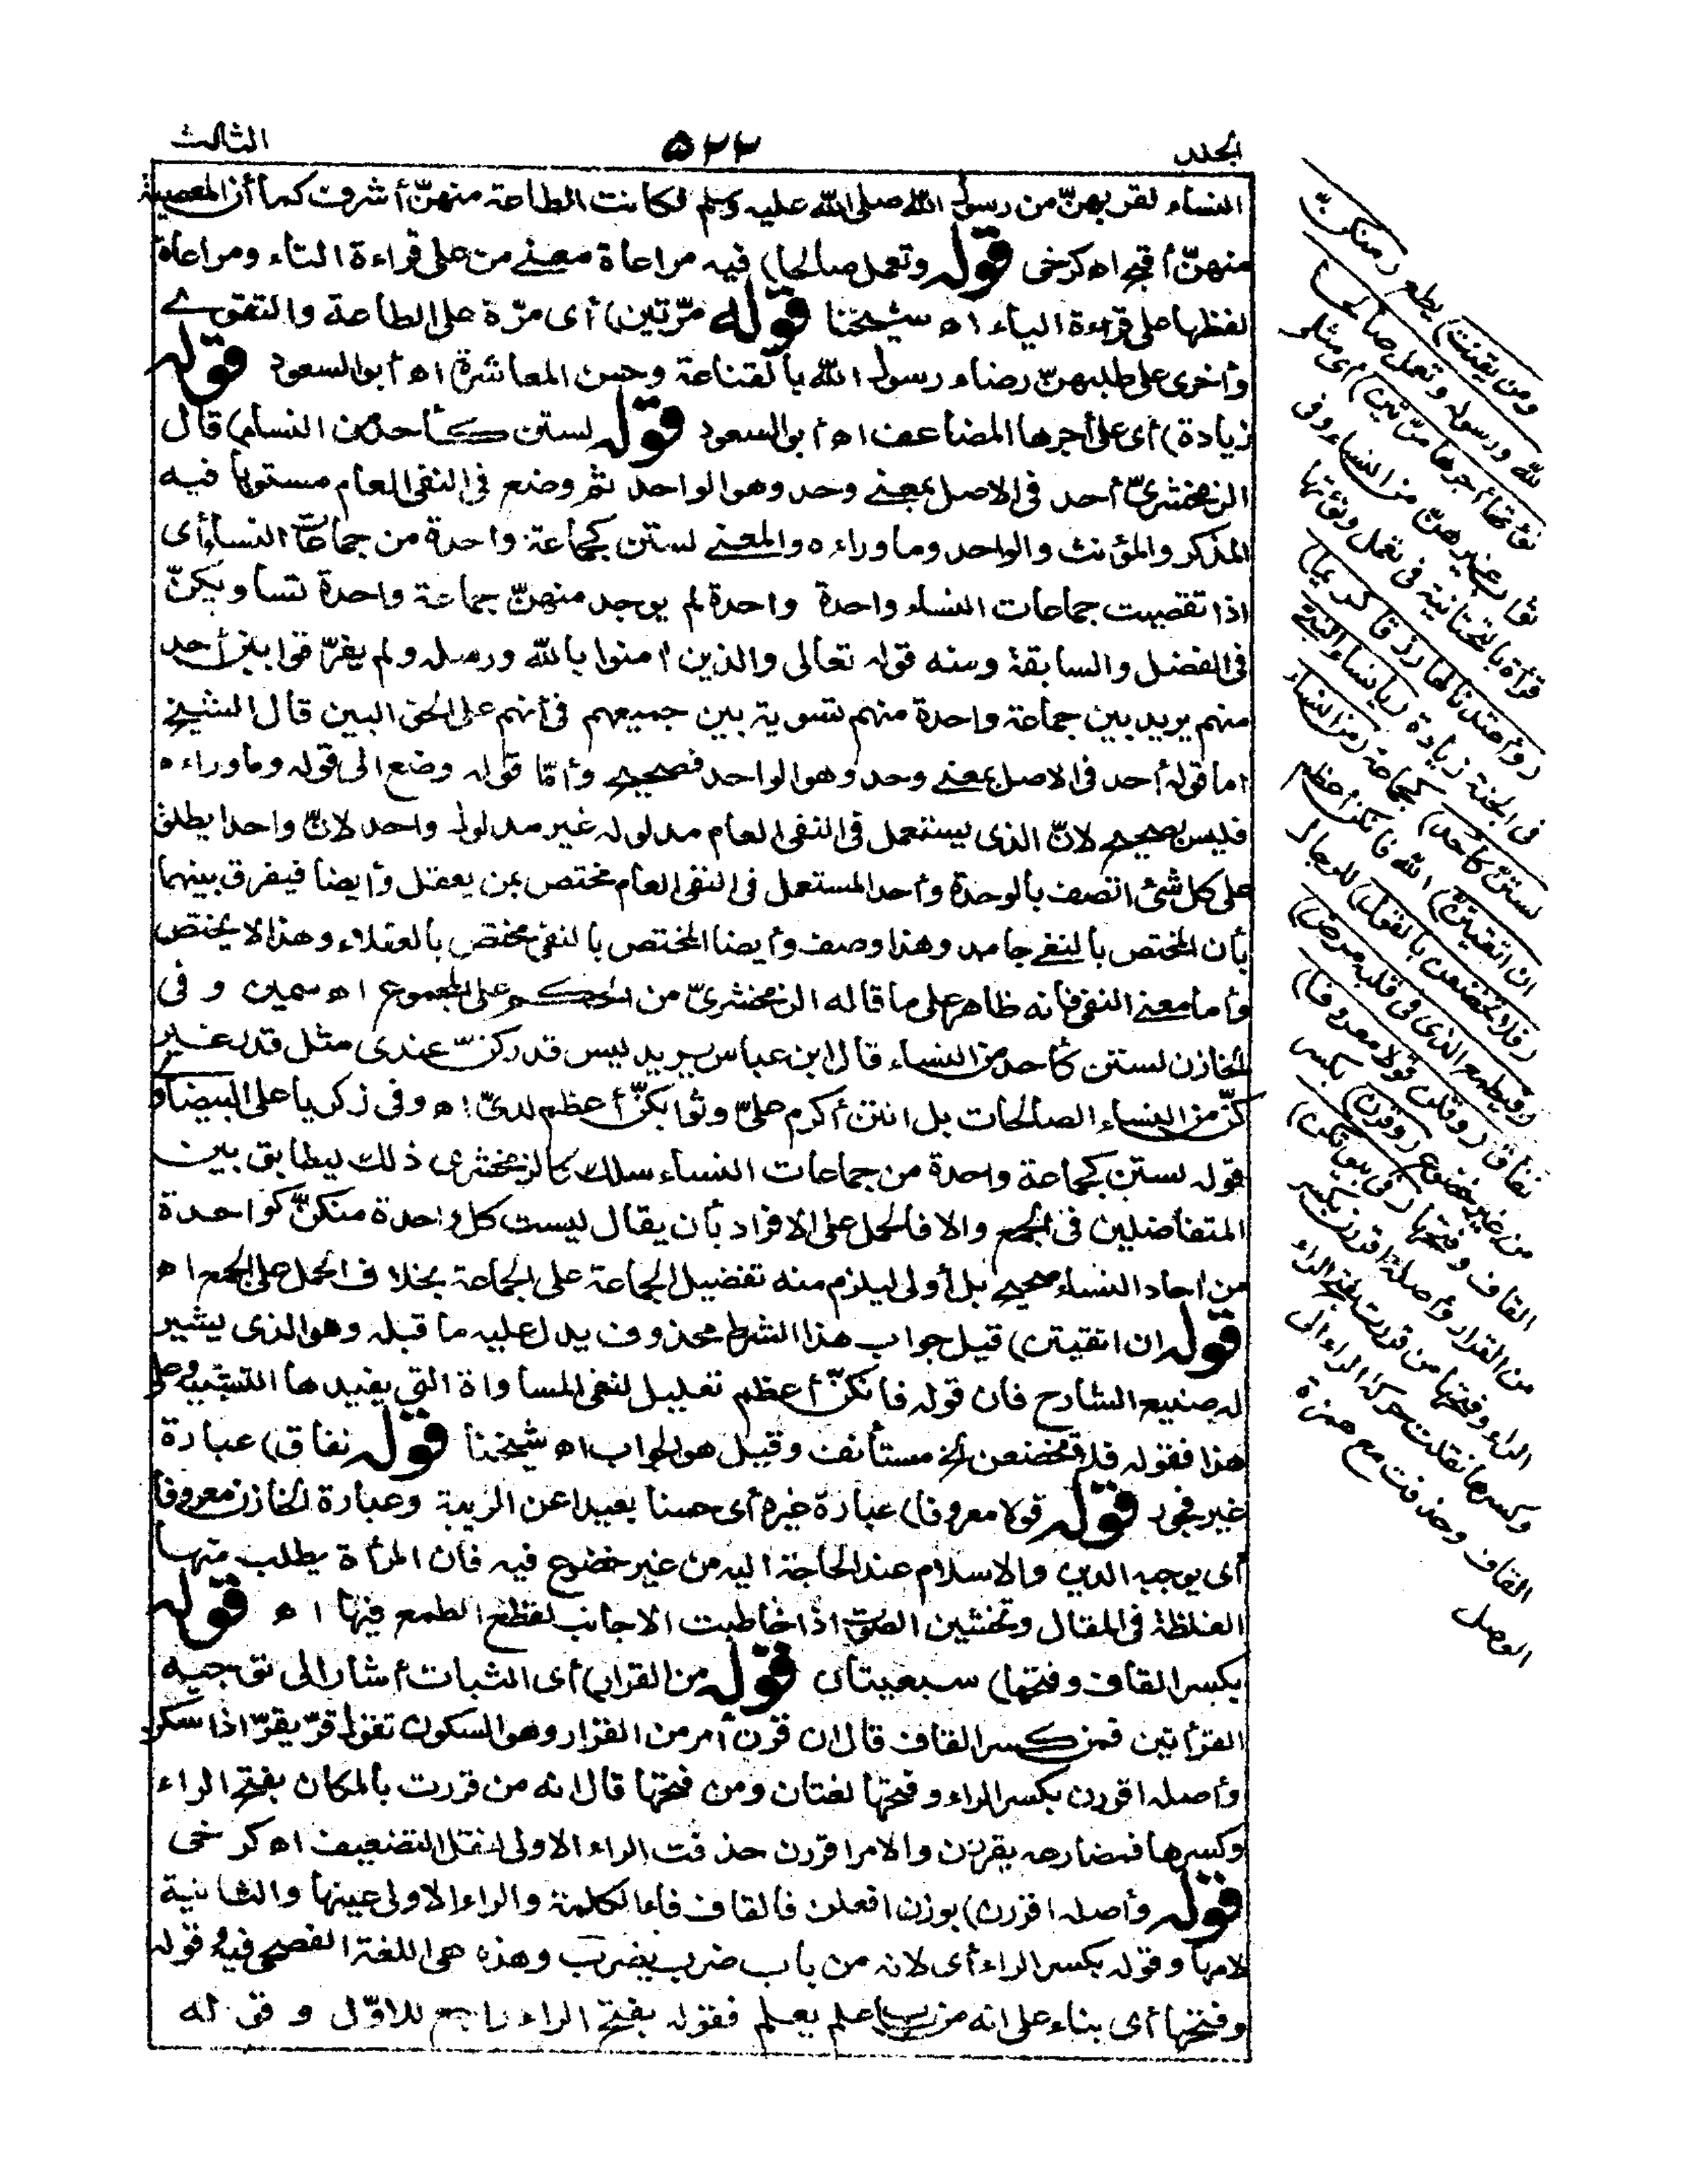 المجلد ٥٢٢ الثالث
النساء لقربهنّ من رسول الله صلى الله عليه وسلم لكانت الطاعة منهنّ أشرف كما أن المعصية
منهنّ أقبح اه كرخى قوله وتعمل صالحا) فيه مراعاة معنے من على قراءة التاء ومراعاة
لفظها على قراءة الياء اه شيخنا قوله مرّتين) أى مرّة على الطاعة والتقوے
وأخرى على طلبهنّ رضاء رسول الله بالقناعة وحسن المعاشرة اه أبو السعود قوله
زيادة) أى على أجرها المضاعف اه أبو السعود قوله لستن كأحد من النساء) قال
الزمخشرىّ أحد فى الاصل بمعنے وحد وهو الواحد ثم وضع فى النفى العام مستويا فيه
المذكر والمؤنث والواحد وما وراءه والمعنے لستن كجماعة واحدة من جماعات النساء أى
اذا تقصيت جماعات النساء واحدة واحدة لم يوجد منهنّ جماعة واحدة تساويكنّ
فى الفضل والسابقة ومنه قوله تعالى والذين امنوا بالله ورسله ولم يفرّقوا بين أحد
منهم يريد بين جماعة واحدة منهم تسوية بين جميعهم فى أنهم على الحق البين قال الشيخ
اما قوله أحد فى الاصل بمعنے وحد وهو الواحد فصحيح وأمّا قوله وضع الى قوله وما وراءه
فليس بصحيح لانّ الذى يستعمل فى النفى العام مدلوله غير مدلول واحد لانّ واحدا يطلق
على كل شئ اتصف بالوحدة وأحد المستعمل فى النفى العام مختص بمن يعقل وأيضا فيفرق بينهما
بأن المختص بالنفے جامد وهذا وصف وأيضا المختص بالنفے مختص بالعقلاء وهذا لا يختص
وأما معنے النفى فأنه ظاهر على ما قاله الزمخشرىّ من الحكم على المجموع اه سمين و فى
الخازن لستن كأحد من النساء قال ابن عباس يريد ليس قدركنّ عندى مثل قدر غير
كنّ من النساء الصالحات بل انتن أكرم علىّ وثوابكنّ أعظم لدىّ اه وفى زكريا على البيضاو
قوله لستن كجماعة واحدة من جماعات النساء سلك كالزمخشرى ذلك ليطابق بين
المتفاضلين فى الجمع والا فالحمل على الافراد بأن يقال ليست كل واحدة منكنّ كواحدة
من احاد النساء صحيح بل أولى ليلزم منه تفضيل الجماعة على الجماعة بخلاف الحمل على الجمع اه
قوله ان اتقيتن) قيل جواب هذا الشرط محذوف يدل عليه ما قبله وهو الذى يشير
له صنيع الشارح فان قوله فانكنّ أعظم تعليل لنفى المساواة التي يفيدها التشبيه وعلى
هذا فقوله فلا تخضعن الخ مستأنف وقيل هو الجواب اه شيخنا قوله نفاق) عبارة
غيره فجور قوله قولا معروفا) عبارة غيره أى حسنا بعيدا عن الريبة وعبارة الخازن معروفا
أى يوجبه الدين والاسلام عند الحاجة اليه من غير خضوع فيه فان المرأة يطلب منها
الغلظة فى المقال وتخشين الصوت اذا خاطبت الاجانب لقطع الطمع فيها اه قوله
بكسر القاف وفتحها) سبعيتان قوله من القرار) أى الثبات أشار الى توجيه
القرأتين فمن كسر القاف قال ان قرن أمر من القرار وهو السكون تقول قرّ يقرّ اذا سكن
وأصله اقررن بكسر الراء وفتحها لغتان ومن فتحها قال انه من قررت بالمكان بفتح الراء
وكسرها فمضارعه يقررن والامر اقررن حذفت الراء الاولى لثقل التضعيف اه كرخى
قوله وأصله اقررن) بوزن افعلن فالقاف فاء الكلمة والراء الاولى عينها والثانية
لامها وقوله بكسر الراء أى لانه من باب ضرب يضرب وهذه هى اللغة الفصحى فيه وقوله
وفتحها أى بناء على انه من باب علم يعلم فقوله بفتح الراء راجع للاوّل و قوله
ومن يقنت) يطع (منكنّ
لله ورسوله وتعمل صالحا
نؤتها أجرها مرّتين) أى مثلى
ثواب غيرهنّ من النساء وفى
قرأة بالتحتانية فى تعمل ونؤتها
(وأعتدنا لها رزقا كريما)
فى الجنة زيادة (يا نساء النبيّ
لستنّ كأحد) كجماعة (من النساء
ان اتقيتنّ) الله فانكنّ أعظم
(فلا تخضعن بالقول) للرجال
(فيطمع الذى فى قلبه مرض)
نفاق (وقلن قولا معروفا)
من غير خضوع (وقرن) بكسر
القاف وفتحها (فى بيوتكن)
من القرار وأصله اقررن بكسر
الراء وفتحها من قررت بفتح الراء
وكسرها نقلت حركة الراء الى
القاف وحذفت مع همزة
الوصل